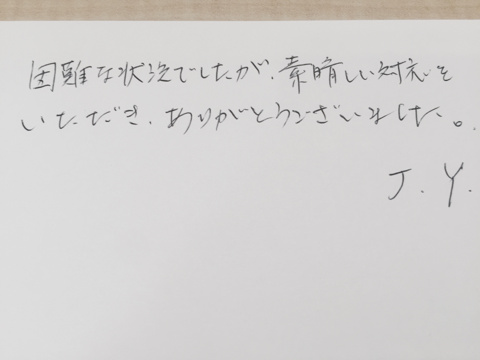 困難な状況でしたが、素晴しい対応を
いただき、ありがとうございました。
J.Y.